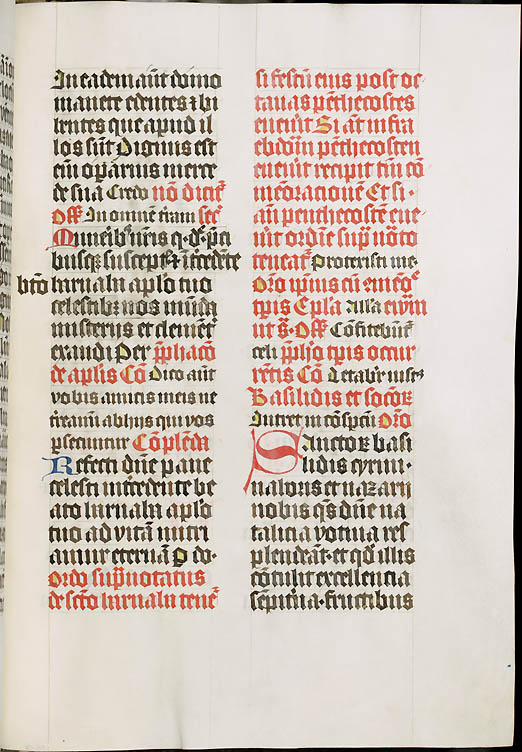 In eadem aūt domo
manete edentes ⁊ bi
bentes que apud il
los sūt Dignus est
eīm opārius merce
de sua Credo nō dicit᷑
Off̄ In omnē t̄ram sec̄
Munerib᷒ n̄ris q̄. d̄s. p̄ci
busqꝫ suscept᷑ ⁊ ītcedēte
bt̄o lurnalu ap̄lo tuo
celestib᷒ nos mūda
misterijs et clement᷑
exaudi Per p̄phacō
de ap̄lis Cō Dico aūt
vobis amicis meis ne
treamī ab hijs qui vos
ꝑsecuntur Cōplēda
Refecti dn̄e pane
celesti ītcedente be
ato lurnalu ap̄lo
tuo ad vitā nutri
amur eternā ꝑ do.
Ordo sup̄notatus
de sct̄o lurnalu tenēt᷑
si festū eius post oc
tauas pēthecostes
euen̄it Si aūt infra
ebdom̄ pēthecosten
euen̄it recipit tm̄ cō
memoracionē Et si.
an̄ penthecostē eue
n̄it ordīe sup̄ nōto
teneat᷑ Protexisti me
Or̄o ip̄ius cū
tp̄is Ep̄la Alla
ut s̄. Off̄ Cōfitebūt᷑
celi tp̄is occur
rētis Cō Letabit᷑ iust᷒
Basilidis et socioꝝ
Intret in cōspc̄u Or̄o
Sanctoꝝ basi
lidis cyrini.
naboris et nazarij
nobis q̄s dn̄e na
talicia votiua res
plendeāt. et qd̄ illis
cōtulit excellencia
sēpit̄na. fructibus